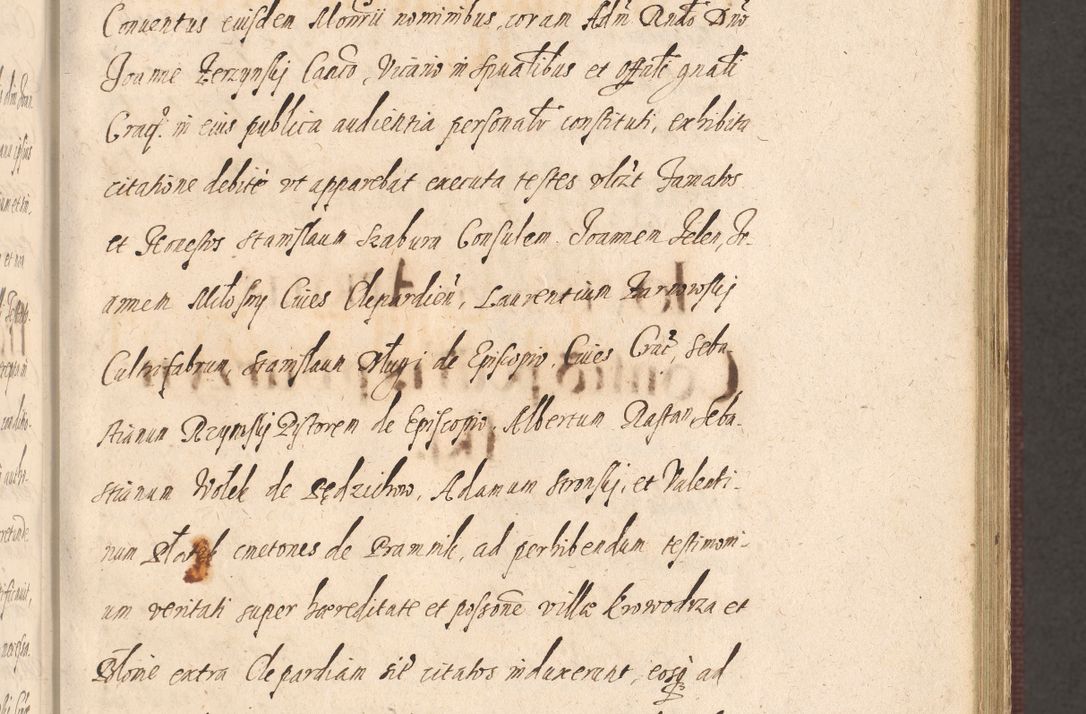 Conuentus eiusdem Monrii nominibus, coram Adm Rndo Dno
Joanne Zerzynskj Canco, Vicario in spualibus et offali gnali
Cracq. in eius publica audientia personalr constituti, exhibita
citatione debite vt apparebat executa testes vltzt Famatos
et Honestos Stanislaum Szabura Consulem Joannem Jelen, Jo-
annem Miłosny Ciues Clepardien, Laurentium Zarnowskj
Cultrifabrum, Stanislaum Długi de Episcopio Ciues Crac, Seba
stianum Rzymskj Pistorem de Episcopio, Albertum Rastan Seba-
stianum Wołek de Sędzichow, Adamum Stronskj, et Valenti-
num cmetones de Pramnik, ad perhibendum testimoni-
um veritati super hæreditate et possone villæ Krowodrza et
extra Clepardiam sit citatos induxerunt, eosq ad